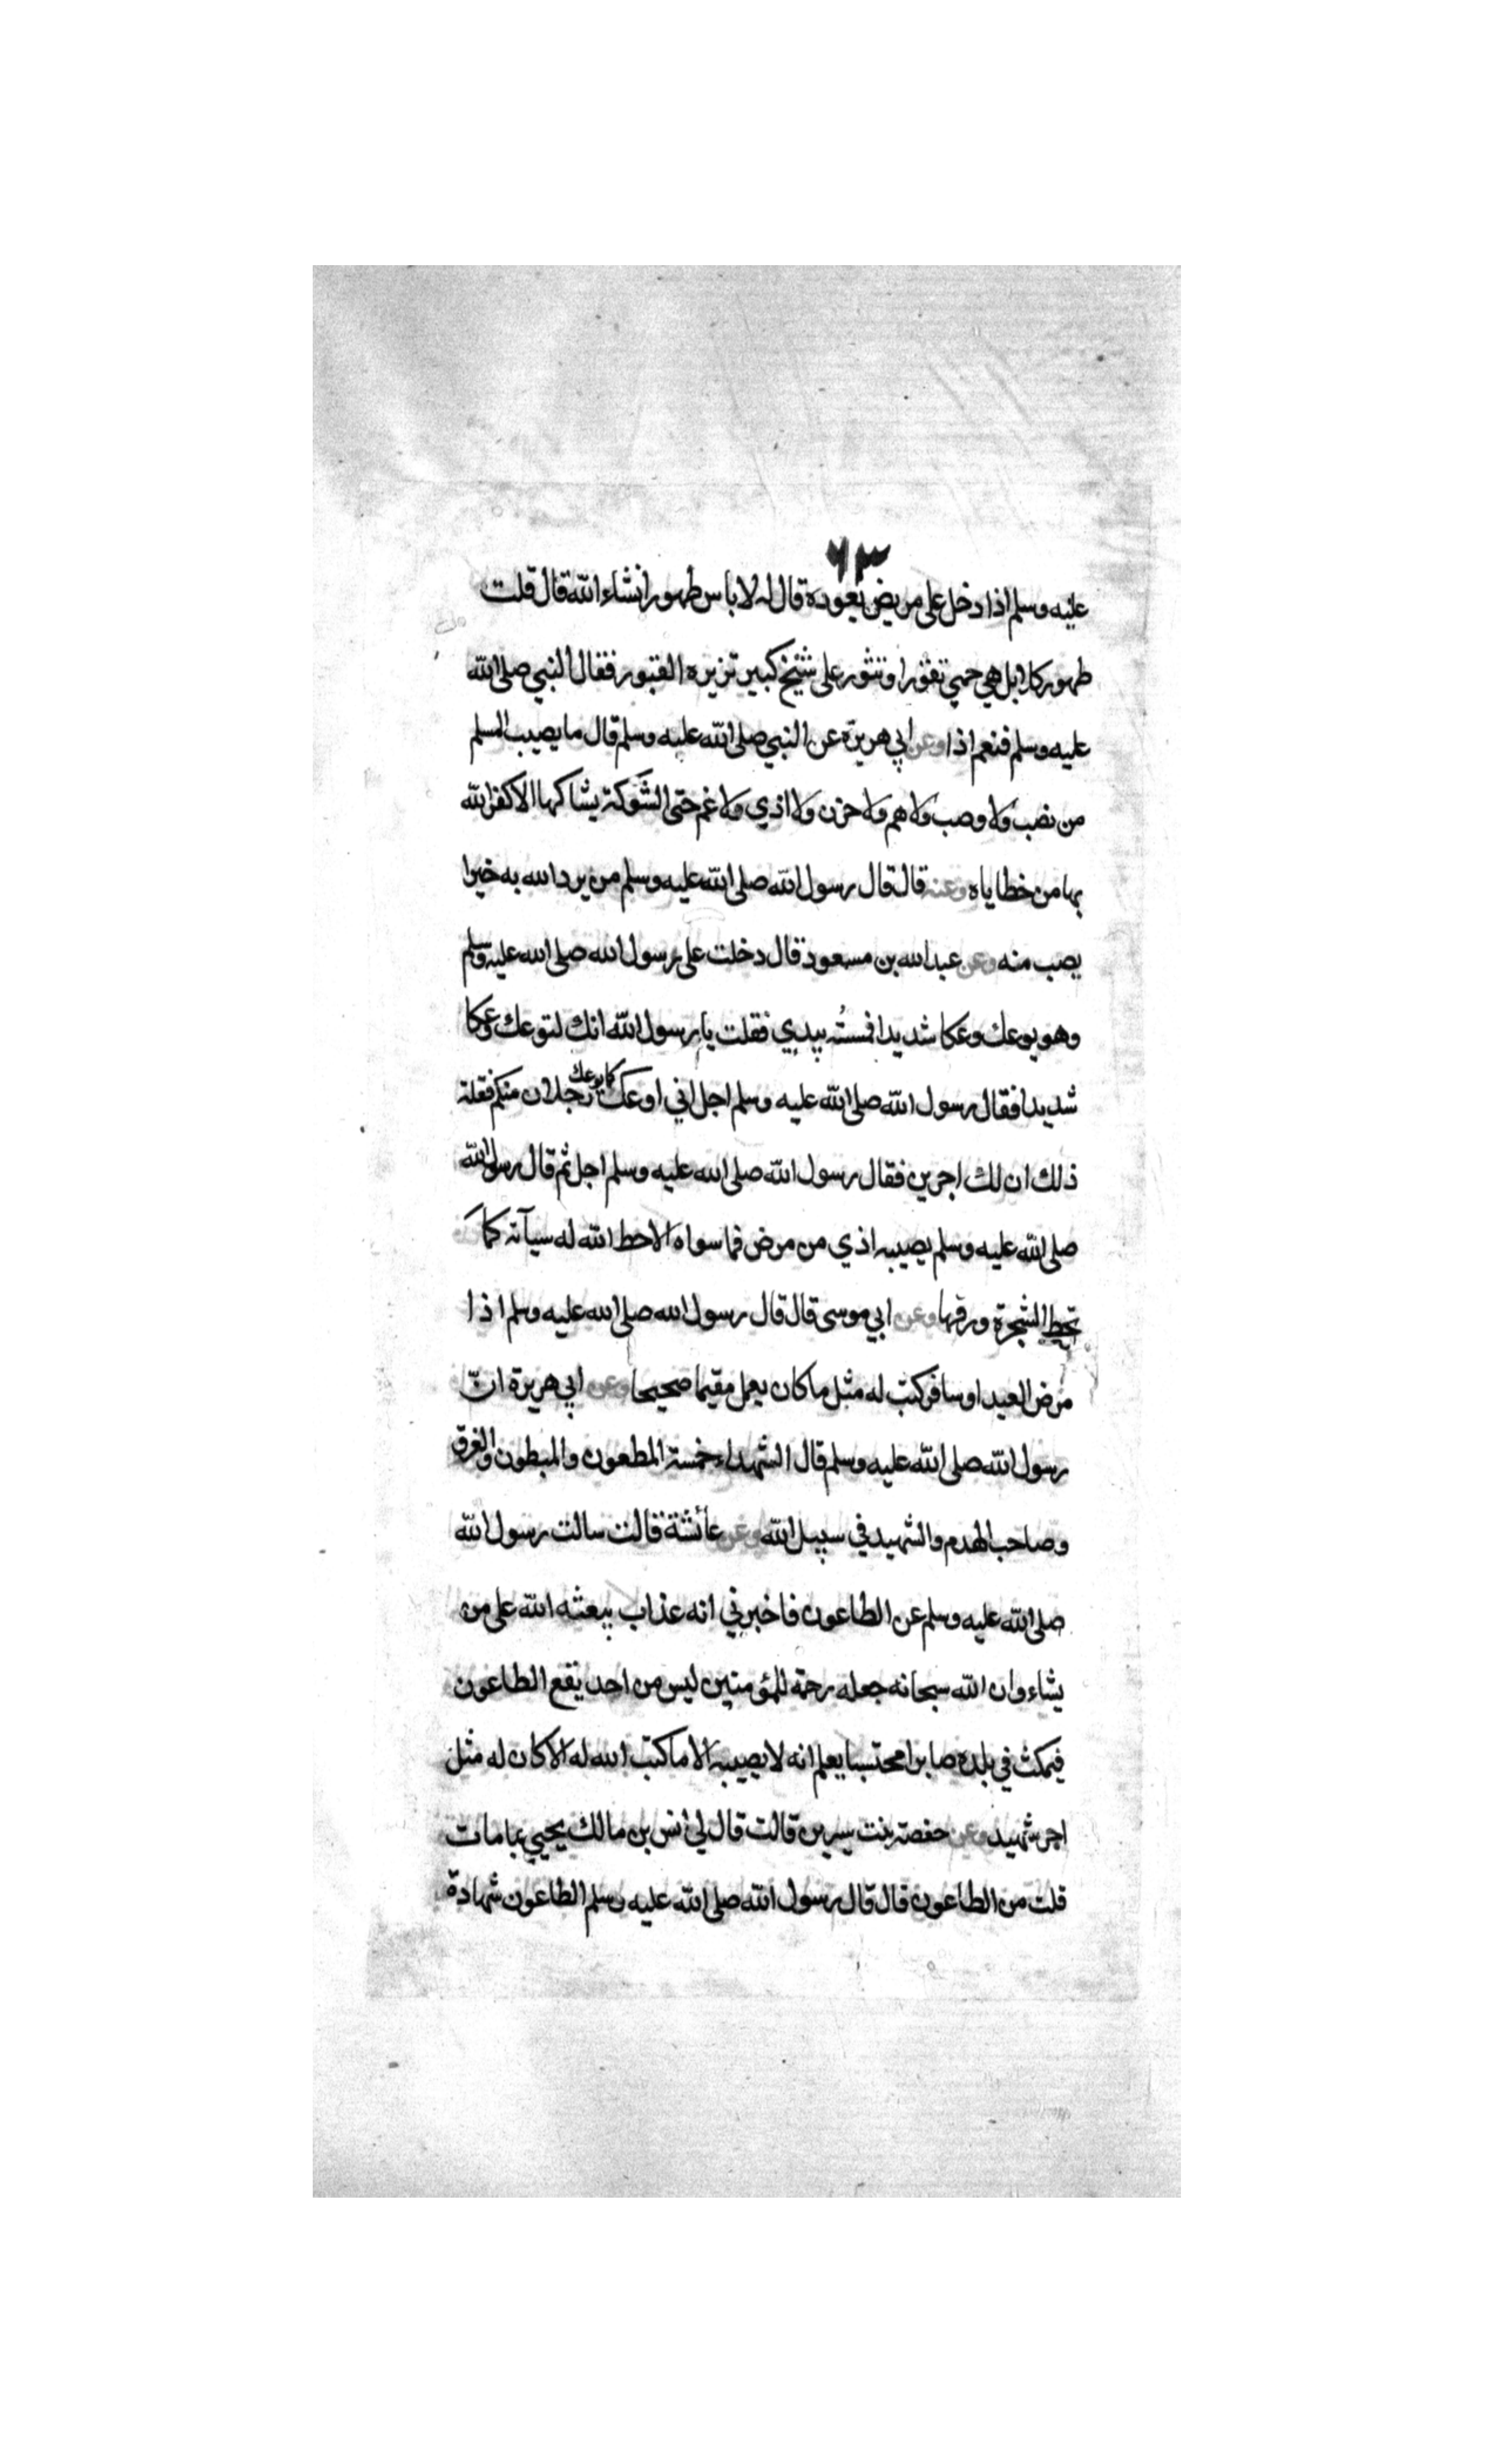 ٦٣
عليه وسلم اذا دخل على مريض يعوده قال له لا باس طهور انشاء الله قال قلت
طهور كلا بل هي حمي تفور او تثور على شيخ كبير تزيره القبور فقال النبي صلى الله
عليه وسلم فنعم اذا وعن ابي هريرة عن النبي صلى الله عليه وسلم قال ما يصيب المسلم
من نصب ولا وصب ولا هم ولا حزن ولا اذي ولا غم حتى الشوكة يشاكها الا كفر الله
بها من خطاياه وعنه قال قال رسول الله صلى الله عليه وسلم من يرد الله به خيرا
يصب منه وعن عبد الله بن مسعود قال دخلت على رسول الله صلى الله عليه وسلم
وهو يوعك وعكا شديدا فمسسته بيدي فقلت يا رسول الله انك لتوعك وعكا
شديدا فقال رسول الله صلى الله عليه وسلم اجل اني اوعك كما يوعك رجلان منكم فقلت
ذلك ان لك اجرين فقال رسول الله صلى الله عليه وسلم اجل ثم قال رسول الله
صلى الله عليه وسلم يصيبه اذي من مرض فما سواه الا حط الله له سيآته كما
تحط الشجرة ورقها وعن ابي موسى قال قال رسول الله صلى الله عليه وسلم اذا
مرض العبد او سافر كتب له مثل ما كان يعمل مقيما صحيحا وعن ابي هريرة انّ
رسول الله صلى الله عليه وسلم قال الشهداء خمسة المطعون والمبطون والغرق
وصاحب الهدم والشهيد في سبيل الله وعن عائشة قالت سالت رسول الله
صلى الله عليه وسلم عن الطاعون فاخبرني انه عذاب يبعثه الله على من
يشاء وان الله سبحانه جعله رحمة للمؤمنين ليس من احد يقع الطاعون
فيمكث في بلده صابرا محتسبا يعلم انه لا يصيبه الا ما كتب الله له الا كان له مثل
اجر شهيد وعن حفصة بنت سيرين قالت قال لي انس بن مالك يحيي بما مات
قلت من الطاعون قال قال رسول الله صلى الله عليه وسلم الطاعون شهادة